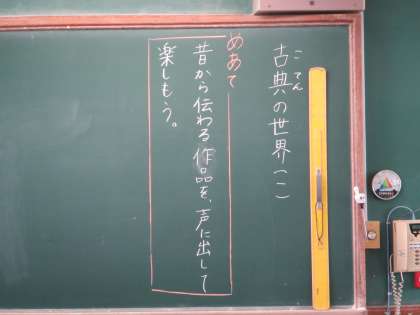 古典の世界(一)
こてん
めあて
昔から伝わる作品を、声に出して
楽しもう。